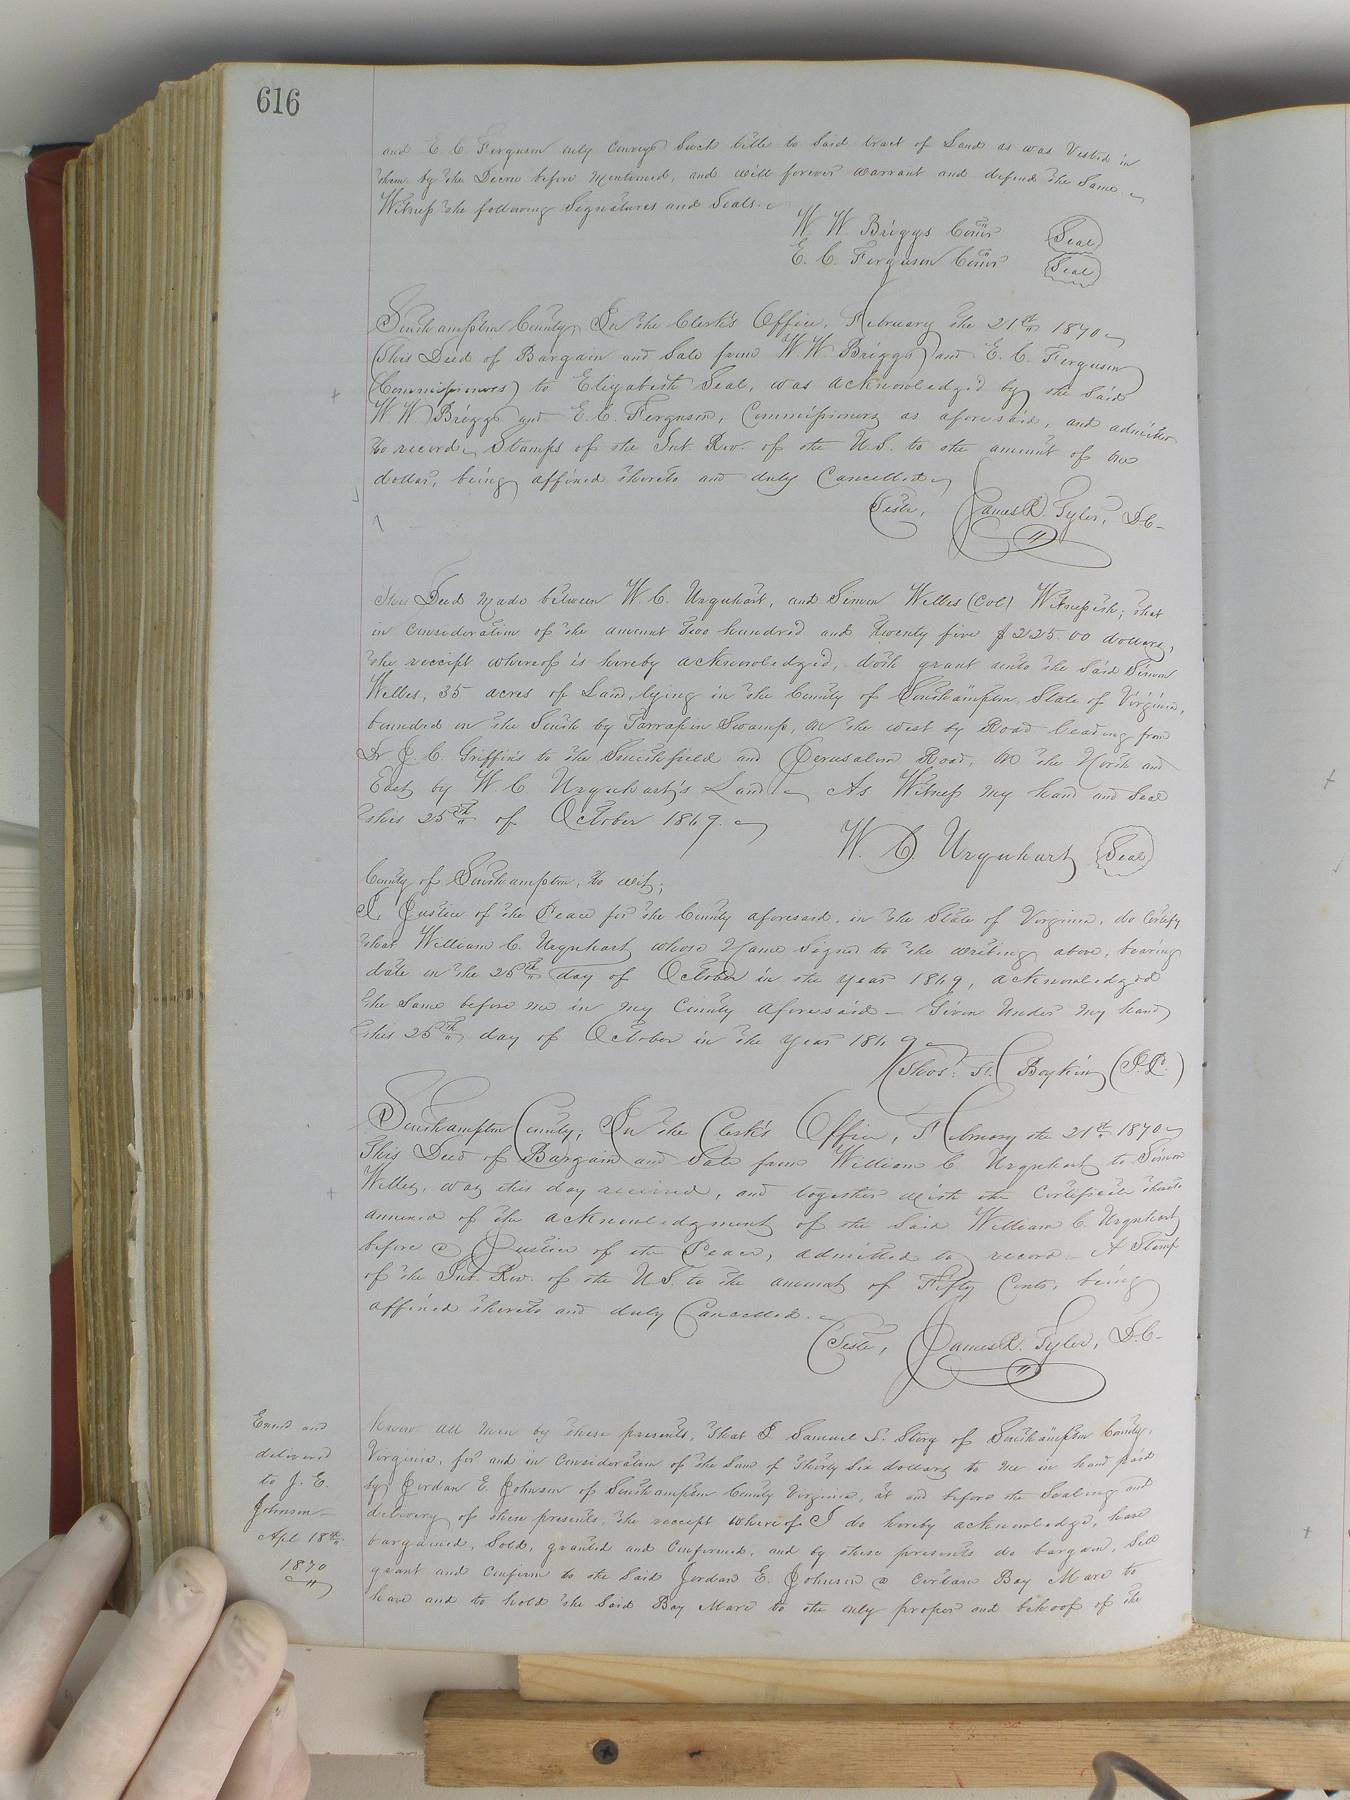 616
and E. C. Ferguson only conveys such title to said tract of Land as was Vested in
them by the Decree before mentioned, and will forever warrant and defend the same
Witness the following Signatures and Seals.
W. W. Briggs Comr Seal
E. C. Ferguson Comr Seal
Southampton County; In the Clerk's Office, February the 21st 1870
This Deed of Bargain and Sale from W. W. Briggs and E. C. Ferguson
(Commissioners) to Elizabeth Seal, was acknowledged by the said
W. W. Briggs and E. C. Ferguson, Commissioners as aforesaid, and admitted
to record, Stamps of the Int. Rev. of the U.S. to the amount of one
dollar, being affixed thereto and duly Cancelled
Teste, James R. Tyler, D.C.
This Deed made between W. C. Urquhart, and Simon Willes (Col) Witnesseth; that
in consideration of the amount two hundred and twenty five $225.00 dollars,
the receipt whereof is hereby acknowledged, doth grant unto the said Simon
Willes, 35 acres of Land, lying in the County of Southampton, State of Virginia,
bounded on the South by Tarrapin Swamp, on the west by Road leading from
Dr J. C. Griffin's to the Smithfield and Jerusalem Road, on the North and
East by W. C. Urquhart's Land. As Witness my hand and seal
this 25th of October 1869.
W. C. Urquhart Seal
County of Southampton, to wit;
I, Justice of the Peace for the County aforesaid, in the State of Virginia, do certify
that William C. Urquhart whose Name signed to the writing above, bearing
date on the 25th day of October in the year 1869, acknowledged
the same before me in my County aforesaid - Given Under my hand
this 25th day of October in the year 1869
Thos. H. Boykin (J.P.)
Southampton County; In the Clerk's Office, February the 21st 1870
This Deed of Bargain and Sale from William C Urquhart to Simon
Willes, was this day received, and together with the Certificate thereto
annexed of the acknowledgment of the said William C. Urquhart
before a Justice of the Peace, admitted to record - A Stamp
of the Int. Rev. of the U.S. to the amount of Fifty Cents, being
affixed thereto and duly Cancelled.
Teste, James R. Tyler, D.C.
Exmd and
delivered
to J. E.
Johnson
Apl 18th
1870
Know all men by these presents, that I Samuel S. Story of Southampton County,
Virginia, for and in consideration of the sum of Thirty Six dollars to me in hand paid
by Jordan E. Johnson of Southampton County Virginia, at and before the Sealing and
delivery of these presents, the receipt whereof I do hereby acknowledge, have
bargained, sold, granted and confirmed, and by these presents do bargain, sell
grant and confirm to the said Jordan E. Johnson a certain Bay Mare to
have and to hold the said Bay Mare to the only proper and behoof of the